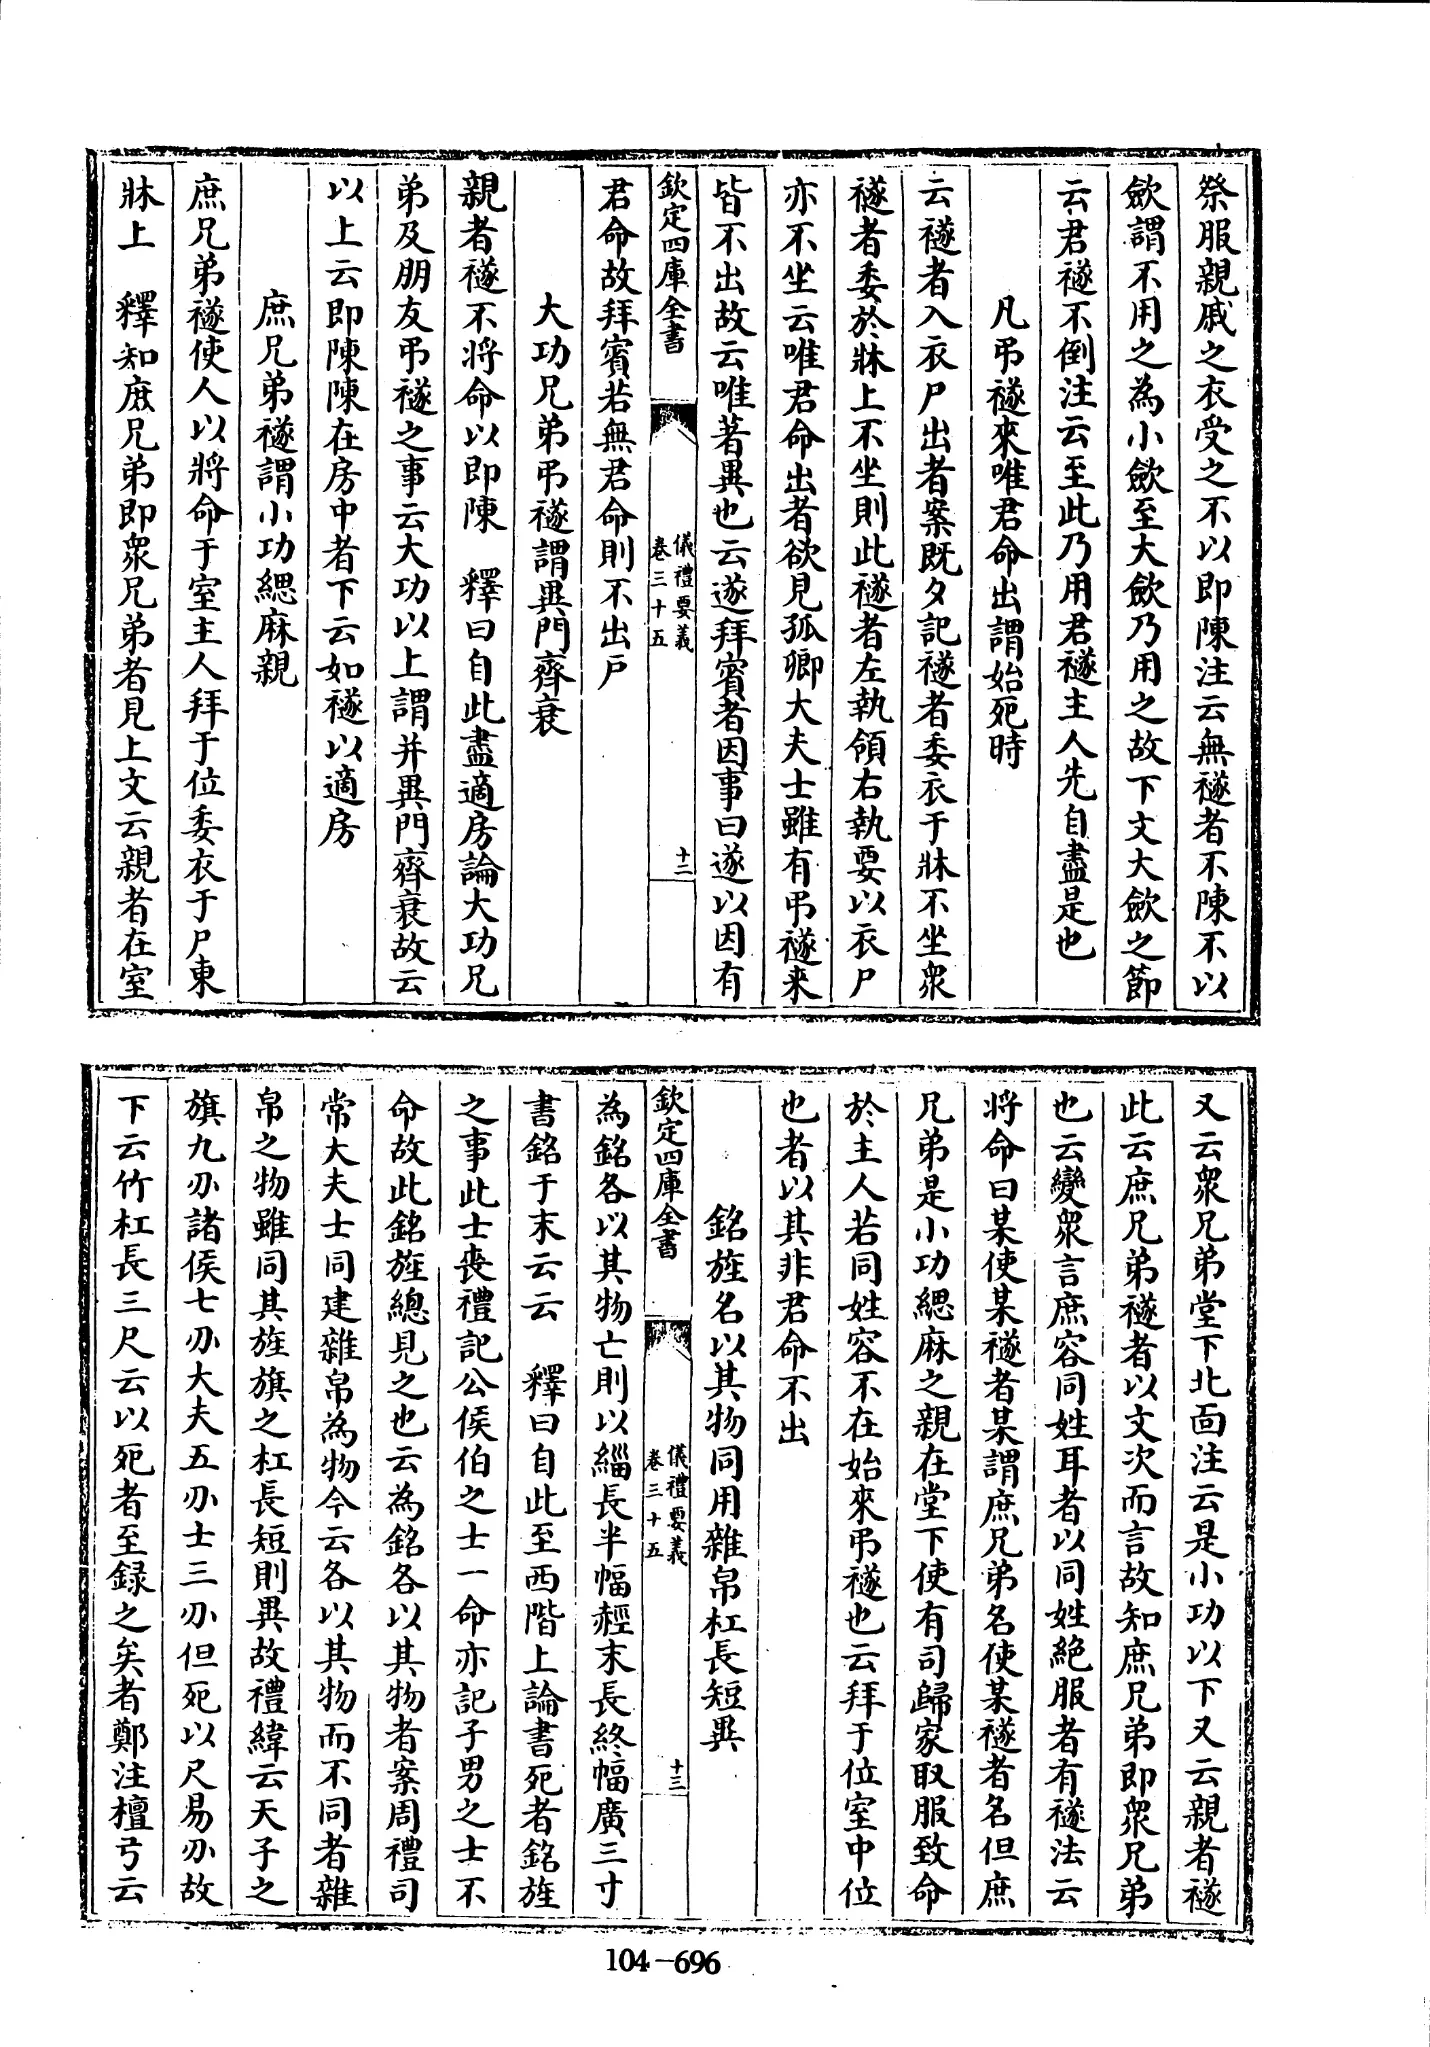 祭服親戚之衣受之不以即陳注云無襚者不陳不以
斂謂不用之為小斂至大斂乃用之故下文大斂之節
云君襚不倒注云至此乃用君襚主人先自盡是也
凡弔襚來唯君命出謂始死時
云襚者入衣尸出者案既夕記襚者委衣于牀不坐衆
襚者委於牀上不坐則此襚者左執領右執要以衣尸
亦不坐云唯君命出者欲見孤卿大夫士雖有弔襚来
皆不出故云唯著異也云遂拜賓者因事曰遂以因有
欽定四庫全書
儀禮要義
卷三十五
十二
君命故拜賓若無君命則不出戶
大功兄弟弔襚謂異門齊衰
親者襚不將命以即陳 釋曰自此盡適房論大功兄
弟及朋友弔襚之事云大功以上謂并異門齊衰故云
以上云即陳陳在房中者下云如襚以適房
庶兄弟襚謂小功緦麻親
庶兄弟襚使人以將命于室主人拜于位委衣于尸東
牀上 釋知庶兄弟即衆兄弟者見上文云親者在室
又云衆兄弟堂下北面注云是小功以下又云親者襚
此云庶兄弟襚者以文次而言故知庶兄弟即衆兄弟
也云變衆言庶容同姓耳者以同姓絶服者有襚法云
將命曰某使某襚者某謂庶兄弟名使某襚者名但庶
兄弟是小功緦麻之親在堂下使有司歸家取服致命
於主人若同姓容不在始來弔襚也云拜于位室中位
也者以其非君命不出
銘旌名以其物同用雜帛杠長短異
欽定四庫全書
儀禮要義
卷三十五
十三
為銘各以其物亡則以緇長半幅赬末長終幅廣三寸
書銘于末云云 釋曰自此至西階上論書死者銘旌
之事此士喪禮記公侯伯之士一命亦記子男之士不
命故此銘旌總見之也云為銘各以其物者案周禮司
常大夫士同建雜帛為物今云各以其物而不同者雜
帛之物雖同其旌旗之杠長短則異故禮緯云天子之
旗九刃諸侯七刃大夫五刃士三刃但死以尺易刃故
下云竹杠長三尺云以死者至録之矣者鄭注檀弓云
104-696